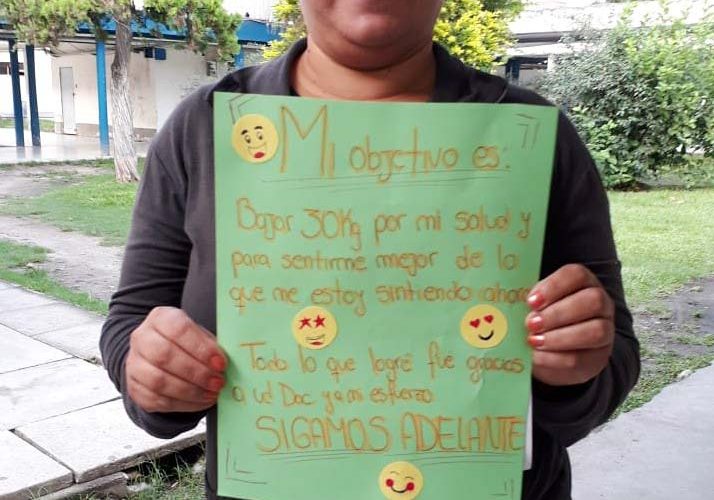 Mi objetivo es:
Bajar 30Kg por mi salud y
para sentirme mejor de lo
que me estoy sintiendo ahora
Todo lo que logré fue gracias
a ud Doc y a mi esfuerzo
SIGAMOS ADELANTE